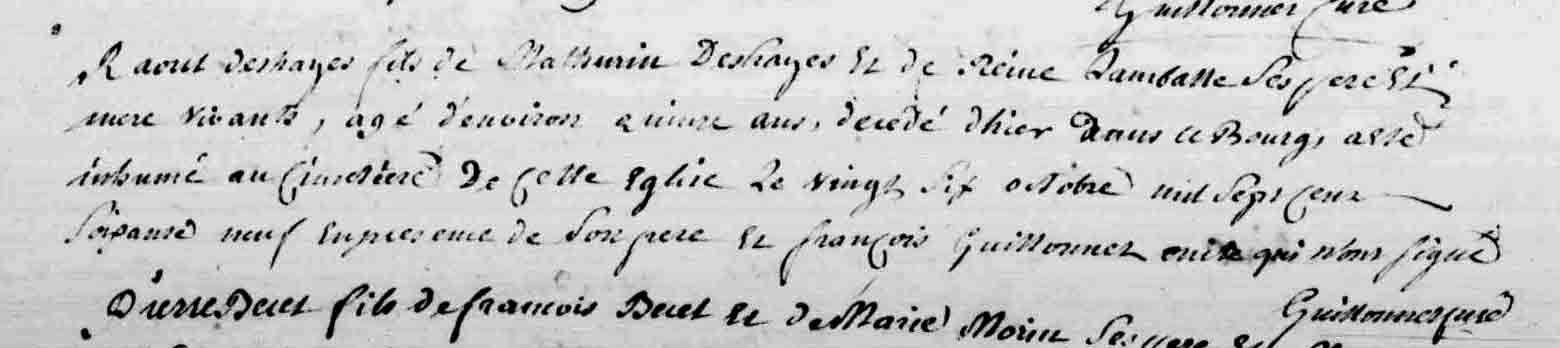 Guittonner curé
Raout deshayes fils de Mathurin Deshayes Et de Réine Lamballe Ses pere Et
mere vivants, agé d'environ quinze ans, decedé d'hier dans le Bourg, a esté
inhumé au Cimetiere De cette Eglise Le vingt six octobre mil Sept cent
soixante neuf En presence de Son pere Et françois Guittonner qui n'ont signé
Guittonner curé
Pierre Becet fils de francois Becet Et de Marie Morin Ses pere Et